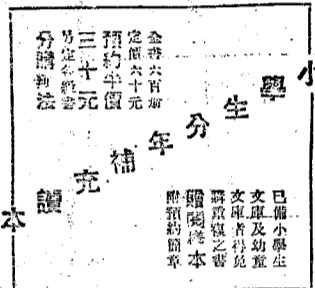 小學生分年補充讀本
金書六百册
定價六十元
預約半價
三十元
另定各級書
分購辦法
已備小學生
文庫及幼童
文庫者得免
購重復之書
贈閱樣本
附預約簡章